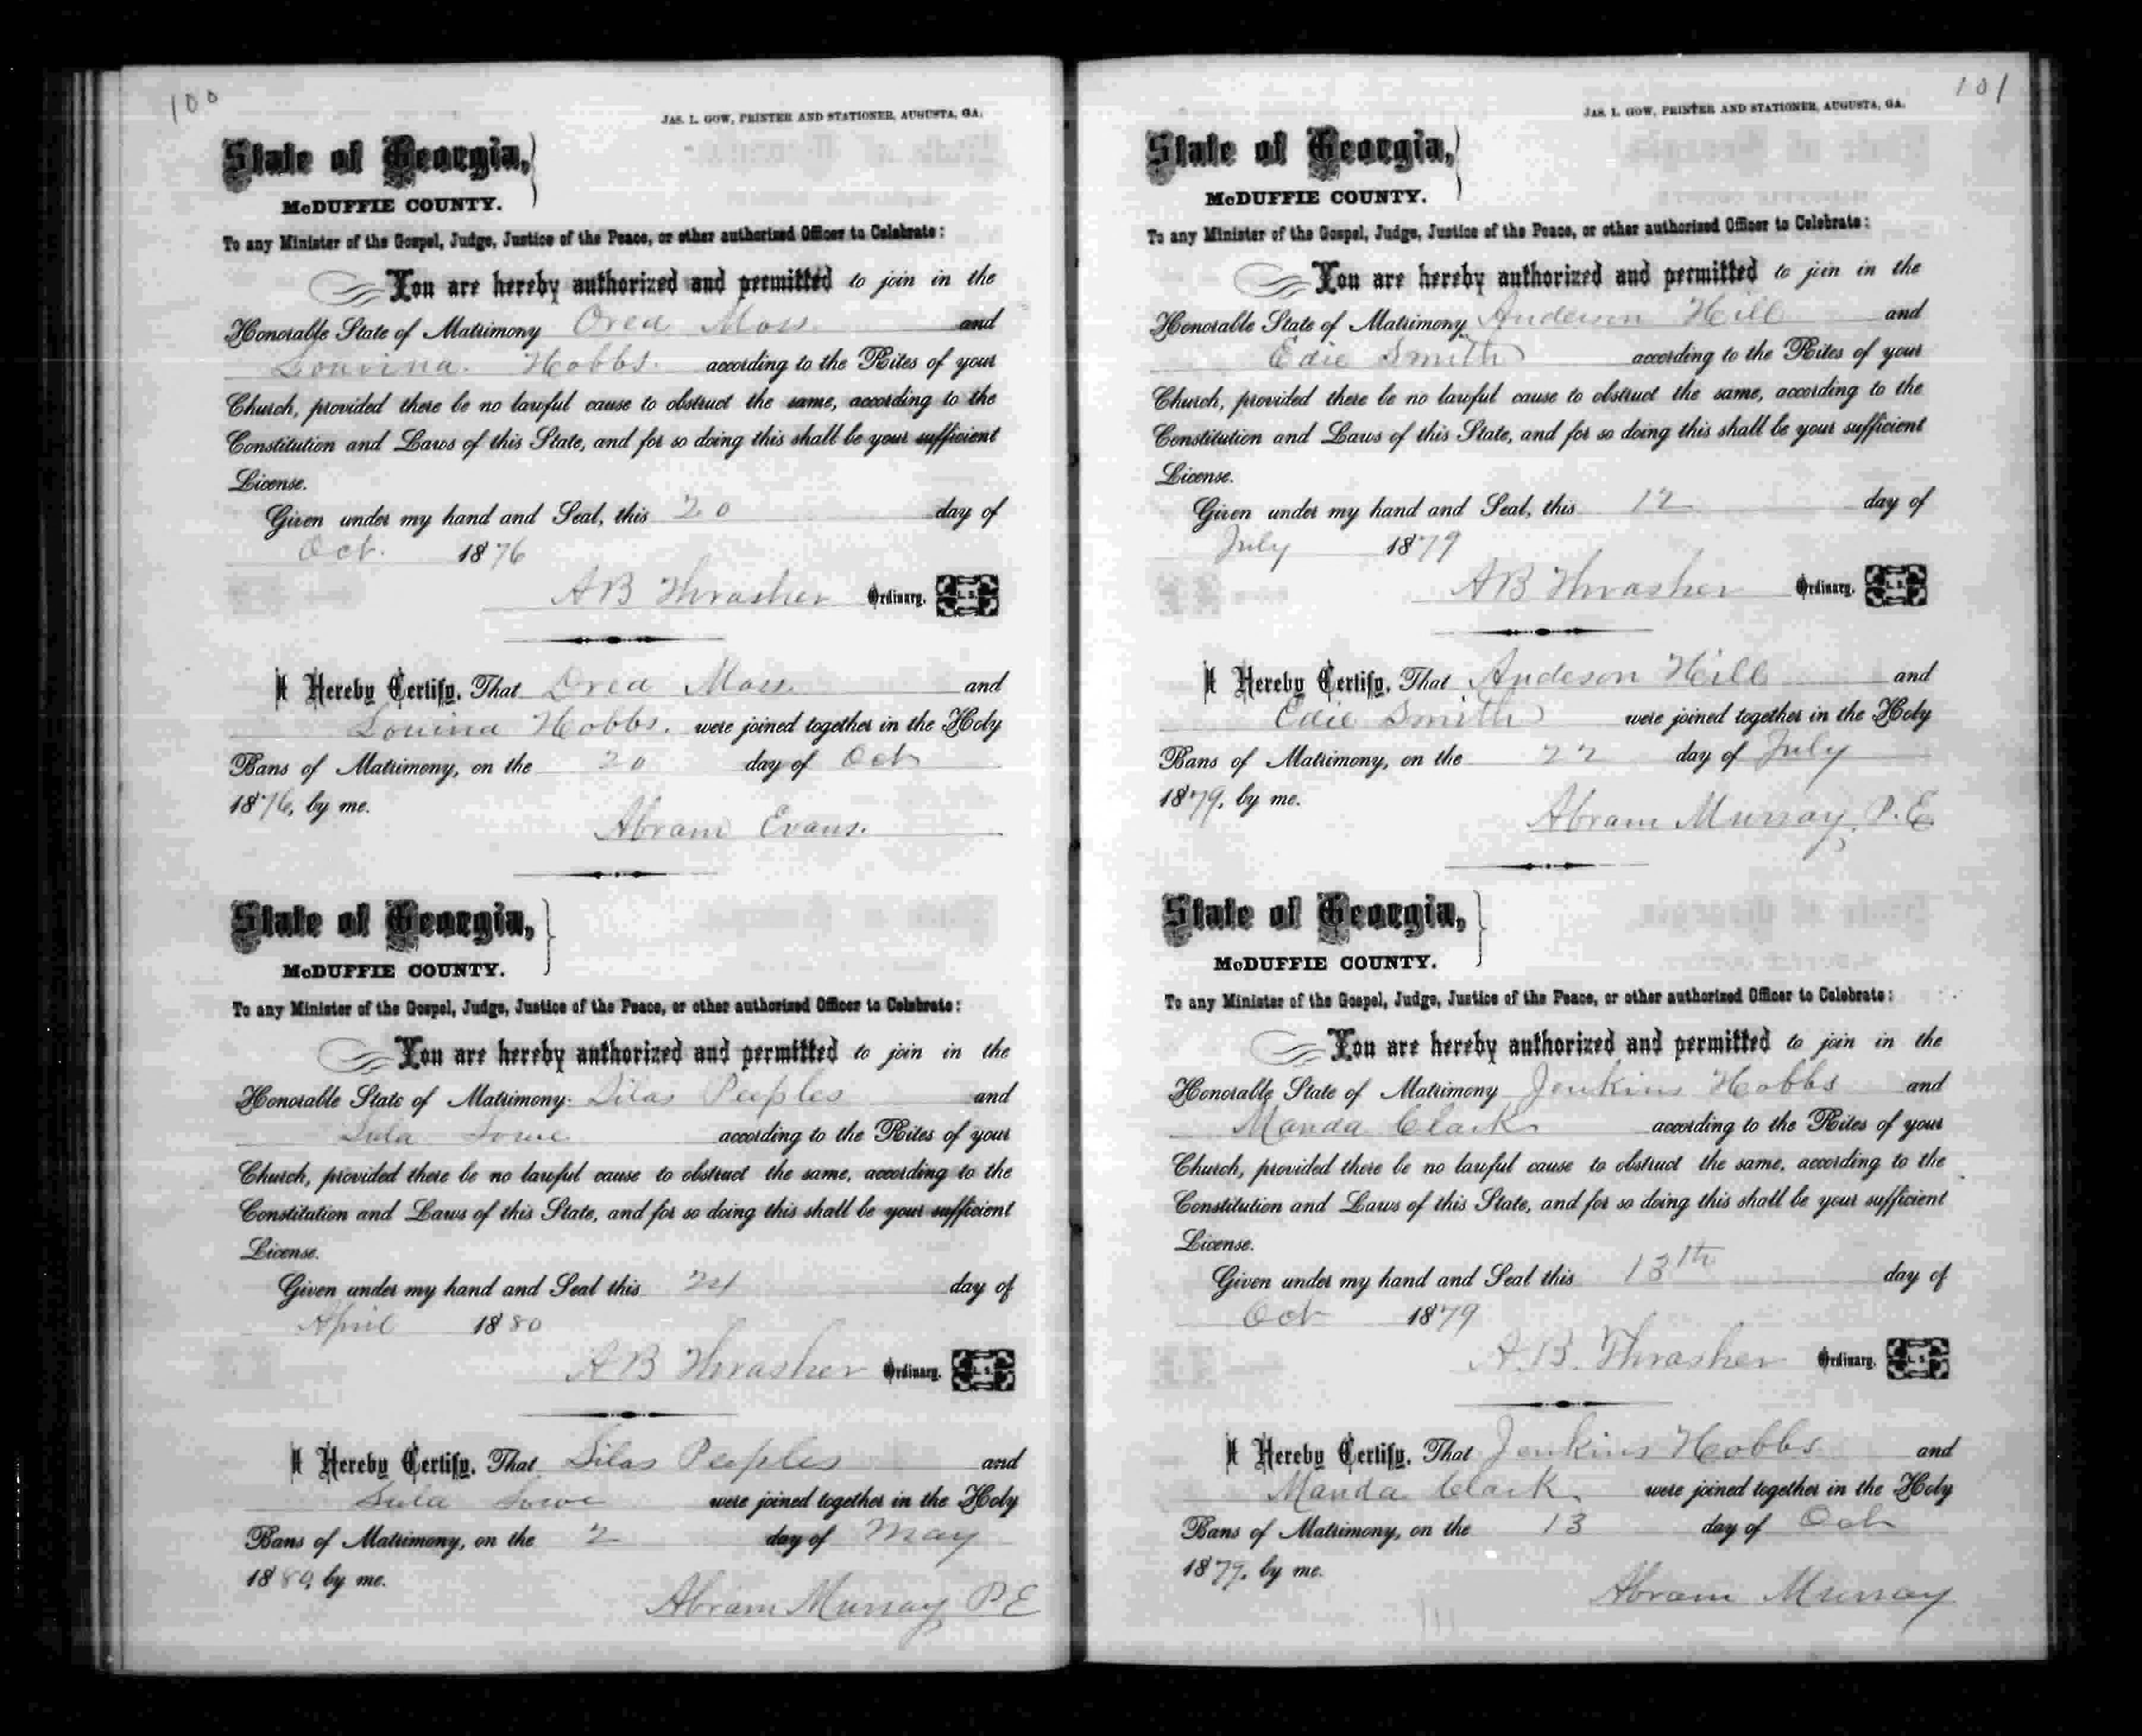 100
JAS. L. GOW, PRINTER AND STATIONER, AUGUSTA, GA.
State of Georgia,
McDUFFIE COUNTY.
To any Minister of the Gospel, Judge, Justice of the Peace, or other authorized Officer to Celebrate:
You are hereby authorized and permitted to join in the
Honorable State of Matrimony Orea Moss and
Louvina. Hobbs. according to the Rites of your
Church, provided there be no lawful cause to obstruct the same, according to the
Constitution and Laws of this State, and for so doing this shall be your sufficient
License.
Given under my hand and Seal, this 20 day of
Oct. 1876
AB Thrasher Ordinary. L. S.
I Hereby Certify, That Orea Moss. and
Louvina Hobbs. were joined together in the Holy
Bans of Matrimony, on the 20 day of Oct
1876, by me.
Abram Evans.
State of Georgia,
McDUFFIE COUNTY.
To any Minister of the Gospel, Judge, Justice of the Peace, or other authorized Officer to Celebrate:
You are hereby authorized and permitted to join in the
Honorable State of Matrimony Silas Peeples and
Lula Lowe according to the Rites of your
Church, provided there be no lawful cause to obstruct the same, according to the
Constitution and Laws of this State, and for so doing this shall be your sufficient
License.
Given under my hand and Seal this 24 day of
April 1880
AB Thrasher Ordinary. L. S.
I Hereby Certify, That Silas Peeples and
Lula Lowe were joined together in the Holy
Bans of Matrimony, on the 2 day of May
1880, by me.
Abram Murray P E
101
JAS. L. GOW, PRINTER AND STATIONER, AUGUSTA, GA.
State of Georgia,
McDUFFIE COUNTY.
To any Minister of the Gospel, Judge, Justice of the Peace, or other authorized Officer to Celebrate:
You are hereby authorized and permitted to join in the
Honorable State of Matrimony Anderson Hill and
Edie Smith according to the Rites of your
Church, provided there be no lawful cause to obstruct the same, according to the
Constitution and Laws of this State, and for so doing this shall be your sufficient
License.
Given under my hand and Seal, this 12 day of
July 1879
AB Thrasher Ordinary. L. S.
I Hereby Certify, That Andeson Hill and
Edie Smith were joined together in the Holy
Bans of Matrimony, on the 22 day of July
1879, by me.
Abram Murray, P. E
State of Georgia,
McDUFFIE COUNTY.
To any Minister of the Gospel, Judge, Justice of the Peace, or other authorized Officer to Celebrate:
You are hereby authorized and permitted to join in the
Honorable State of Matrimony Jenkins Hobbs and
Manda Clark according to the Rites of your
Church, provided there be no lawful cause to obstruct the same, according to the
Constitution and Laws of this State, and for so doing this shall be your sufficient
License.
Given under my hand and Seal this 13th day of
Oct 1879
A. B. Thrasher Ordinary. L. S.
I Hereby Certify, That Jenkins Hobbs and
Manda Clark. were joined together in the Holy
Bans of Matrimony, on the 13 day of Oct
1879, by me.
Abram Murray